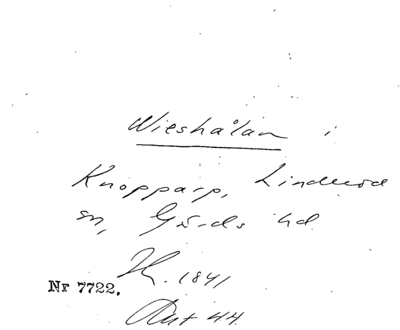 Wieshålan i
Knopparp, Linderöd
sn, Gärds hd
1841
Nr 7722.
Akt 44.